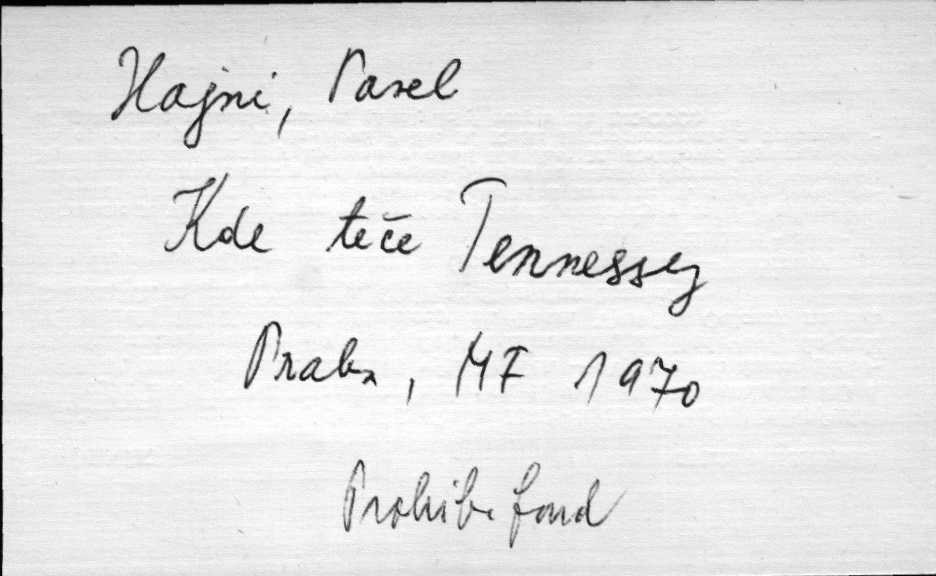 Hajni, Pavel
Kde teče Tennessey
Praha, MF 1970
Prohibi fond